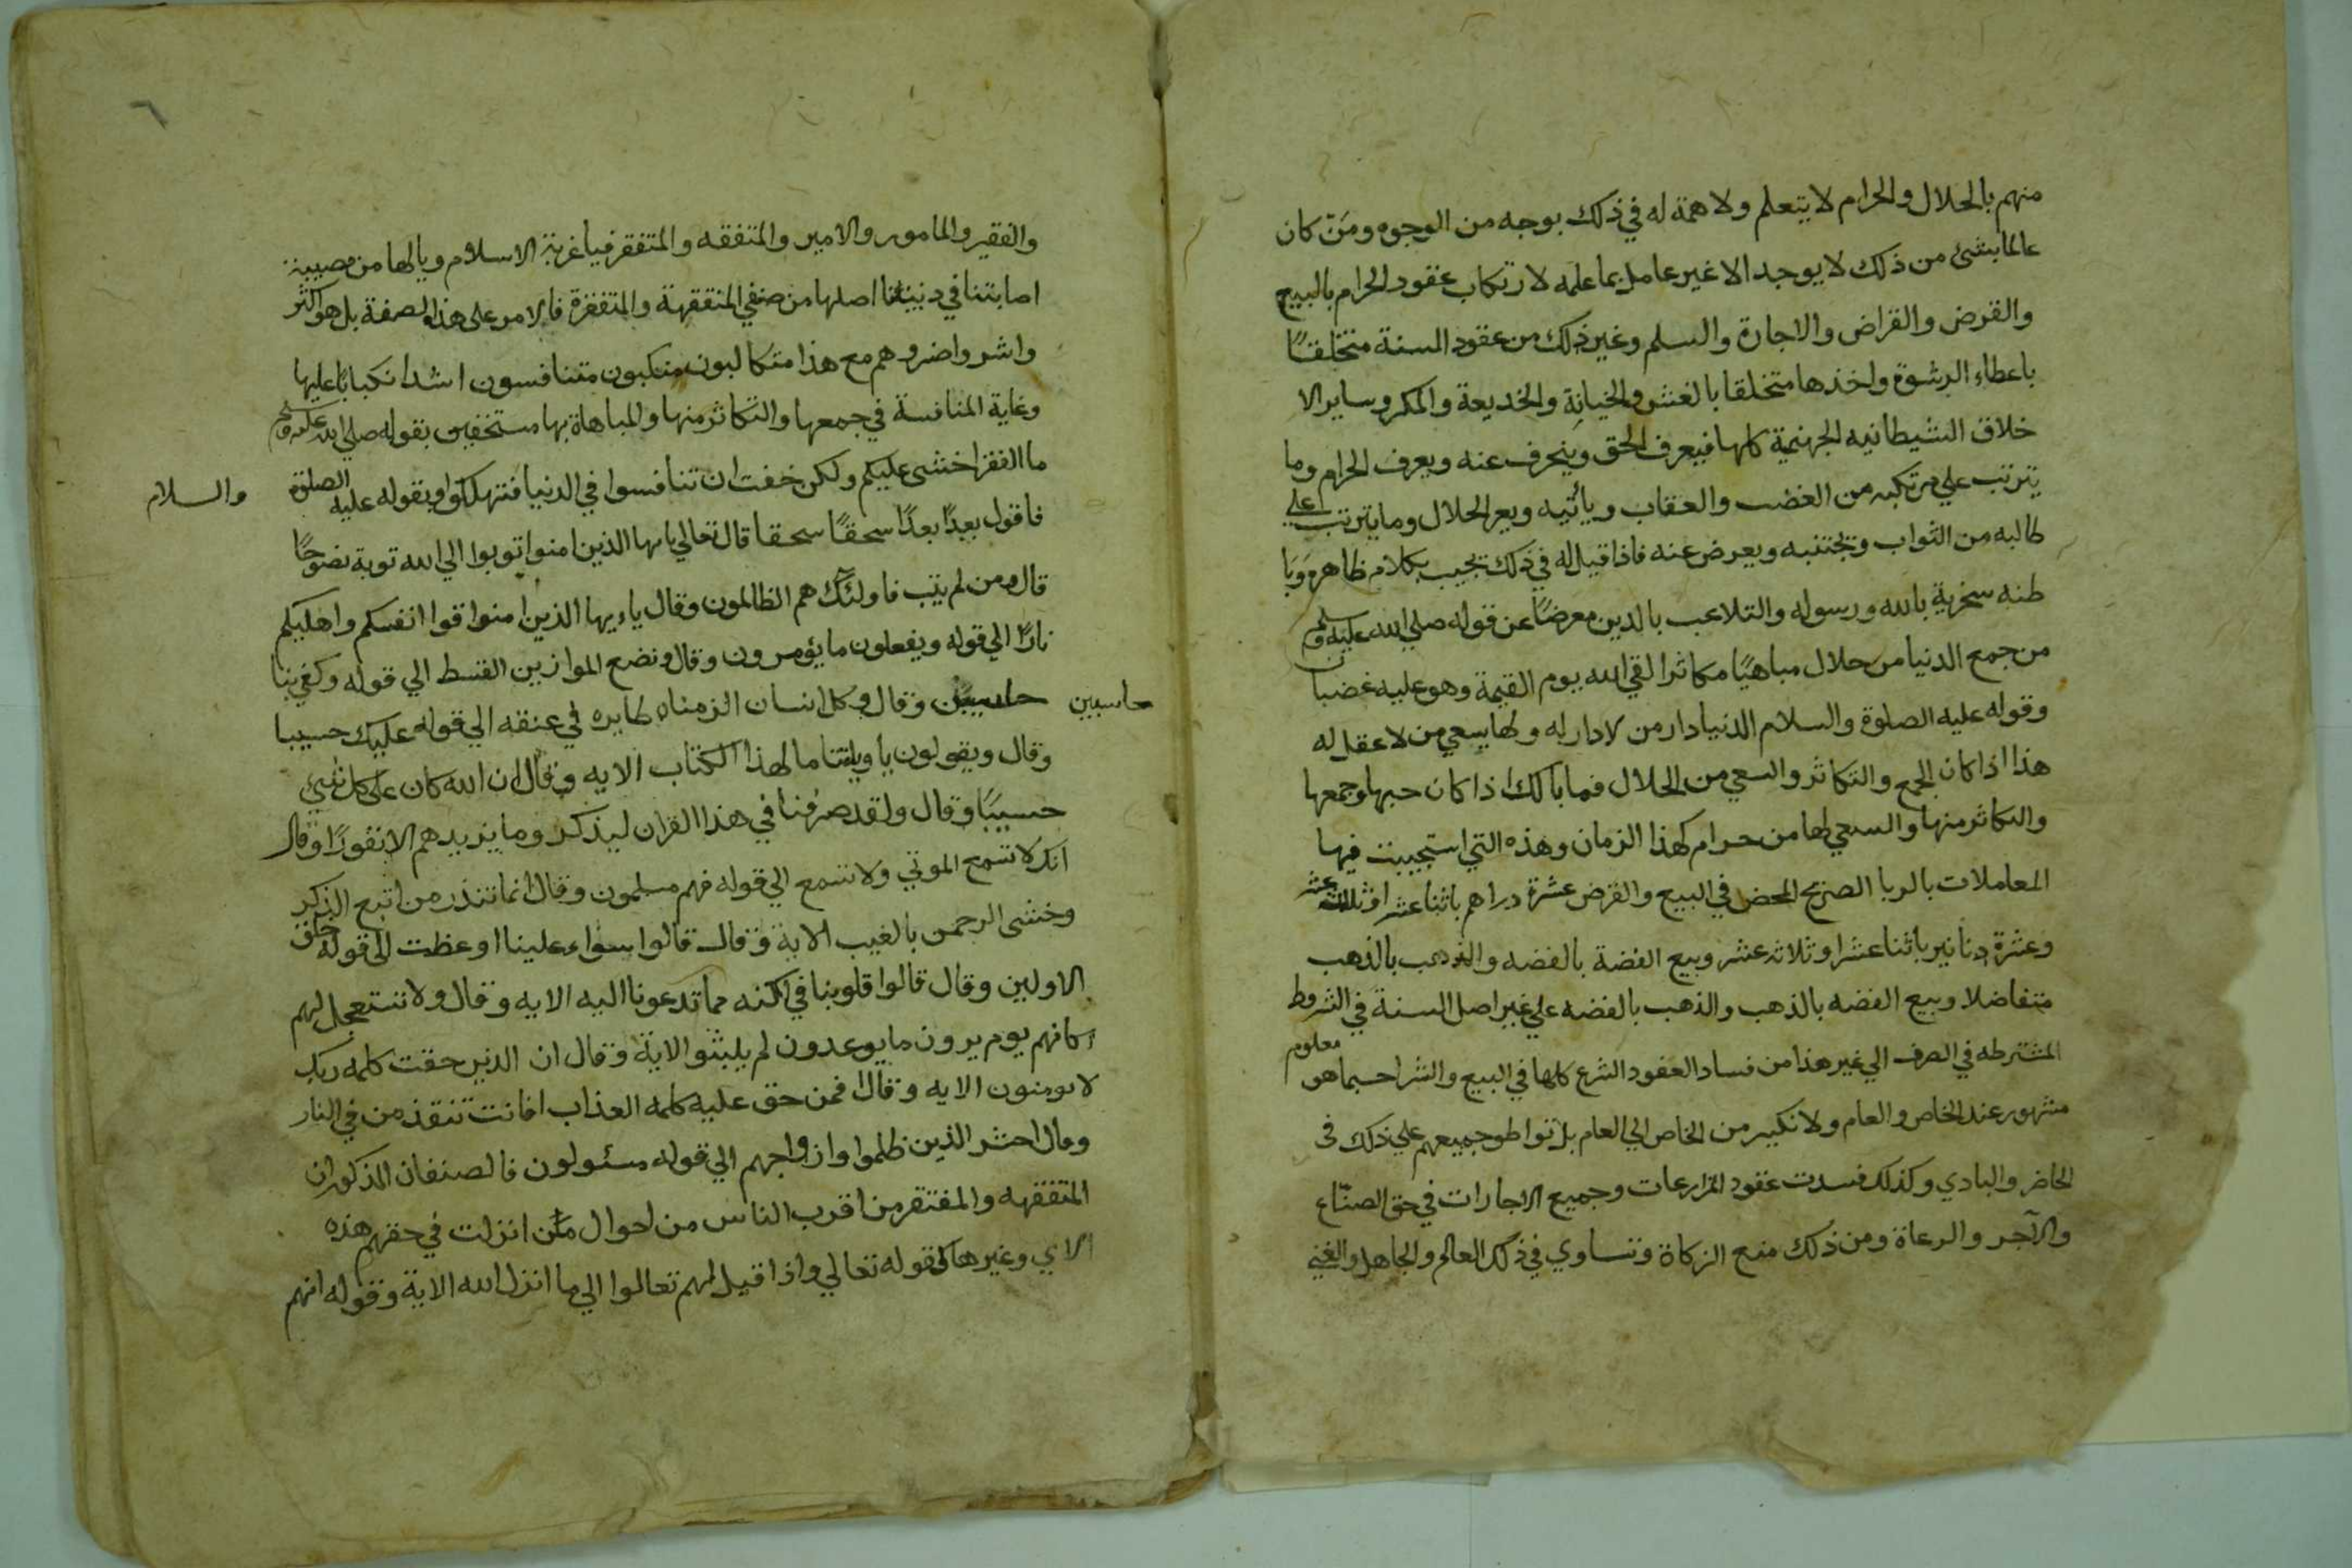 منهم بالحلال والحرام لا يتعلم ولا همة له في ذلك بوجه من الوجوه ومَنْ كان
عالما بشئ من ذلك لا يوجد الا غير عامل بما علمه لارتكاب عقود الحرام بالبيع
والقرض والقراض والاجارة والسلم وغير ذلك من عقود السنة متخلقًا
باعطاء الرشوة واخذها متخلقا بالغش والخيانة والخديعة والمكر وساير الا
خلاق الشيطانيه الجهنمية كلها فيعرف الحق وينحرف عنه ويعرف الحرام وما
يترتب علي مرتكبه من الغضب والعقاب ويأتيه ويعر الحلال وما يترتب علي
طالبه من الثواب وتجتنبه ويعرض عنه فاذا قيل له في ذلك تجيب بكلام ظاهره وَبَا
طنه سخرية بالله ورسوله والتلاعب بالدين معرضًا عن قوله صلي الله عليه وسلم
من جمع الدنيا من حلال مباهيًا مكاثرا لقي الله يوم القيمة وهو عليه غضبان
وقوله عليه الصلوة والسلام الدنيا دار من لا دار له ولها يسعي من لا عقل له
هذا اذا كان الجمع والتكاثر والسعي من الحلال فما بالك اذا كان حبها وجمعها
والتكاثر منها والسعي لها من حرام كهذا الزمان وهذه التي استجيبت فيها
المعاملات بالربا الصريح المحض في البيع والقرض عشرة دراهم باثنا عشر او ثلاثة عشر
وعشرة دنانير باثنا عشر او ثلاثه عشر وبيع الفضة بالفضه والذهب بالذهب
متفاضلا وبيع الفضه بالذهب والذهب بالفضه علي غير اصل السنة في الشروط
المشترطه في الصرف الي غير هذا من فساد العقود الشرع كلها في البيع والشرا حسبما هو معلوم
مشهور عند الخاص والعام ولا نكير من الخاص الي العام بل تواطو جميعهم علي ذلك في
الحاضر والبادي وكذلك فسدت عقود المزارعات وجميع الاجارات في حق الصنّاع
والآجر والرعاة ومن ذلك منع الزكاة وتساوي في ذلك العالم والجاهل والغني
٦
والفقير والمامور والامير والمتفقه والمتفقر فيا غربة الاسلام ويالها من مصيبة
اصابتنا في ديننا اصلها من صنفي المتفقهة والمتفقرة فالامر على هذا الصفة بل هو اكثر
واشر واضر وهم مع هذا متكالبون منكبون متنافسون اشد انكبابًا عليها
وغاية المنافسة في جمعها والتكاثر منها والمباهاة بها مستخفين بقوله صلي الله عليه وسلم
ما الفقر اخشى عليكم ولكن خفت ان تنافسوا في الدنيا فتهلكوا وبقوله عليه الصلوة
والسلام
فاقول بعدًا بعدًا سحقًا سحقا قال تعالي يايها الذين امنوا توبوا الي الله توبة نصوحًا
قال ومن لم يتب فاولئك هم الظالمون وقال ياءيها الذين امنوا قوا انفسكم واهليكم
نارًا الي قوله ويفعلون ما يؤمرون وقال ونضع الموازين القسط الي قوله وكفي بنا
حاسبين
حاسبين وقال وكل انسان الزمناه طايره في عنقه الي قوله عليك حسيبا
وقال ويقولون يا ويلتنا ما لهذا الكتاب الايه وقال ان الله كان على كل شيء
حسيبًا وقال ولقد صرفنا في هذا القران ليذكر وما يزيدهم الا نفورًا وقال
انك لا تسمع الموتي ولا تسمع الي قوله فهم مسلمون وقال انما تنذر من اتبع الذكر
وخشى الرحمن بالغيب الاية وقال قالوا سواء علينا اوعظت الى قوله خلق
الاولين وقال قالوا قلوبنا في اكنه مما تدعونا اليه الايه وقال ولا تستعجل لهم
كانهم يوم يرون ما يوعدون لم يلبثوا الاية وقال ان الذين حقت كلمه ربك
لا يومنون الايه وقال افمن حق عليه كلمه العذاب افانت تنقذ من في النار
وقال احشر الذين ظلموا وازواجهم الي قوله مسئولون فالصنفان المذكوران
المتفقهه والمفتقر من اقرب الناس من احوال من انزلت في حقهم هذه
الاي وغيرها كقوله تعالي واذا قيل لهم تعالوا الي ما انزل الله الاية وقوله انهم